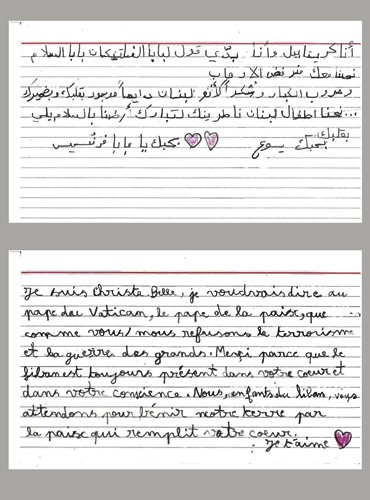 أنا كريستابيل وأنا بدّي قول لبابا الفاتيكان بابا السلام
نحنا معك منرفض الارهاب
وحروب الكبار وشكراً لأنو لبنان دايماً موجود بقلبك وبضميرك
...نحنا اطفال لبنان ناطرينك لتبارك أرضنا بالسلام يلي
بقلبك
بحبك يسوع بحبك يا بابا فرنسيس
Je suis Christa Belle, je voudrais dire au
pape du Vatican, le pape de la paix, que
comme vous/nous refusons le terrorisme
et la guerre des grands. Merçi parce que le
liban est toujours présent dans votre coeur et
dans votre conscience. Nous, enfants du liban, vous
attendons pour bénir notre terre par
la paix qui remplit votre coeur.
Je t'aime